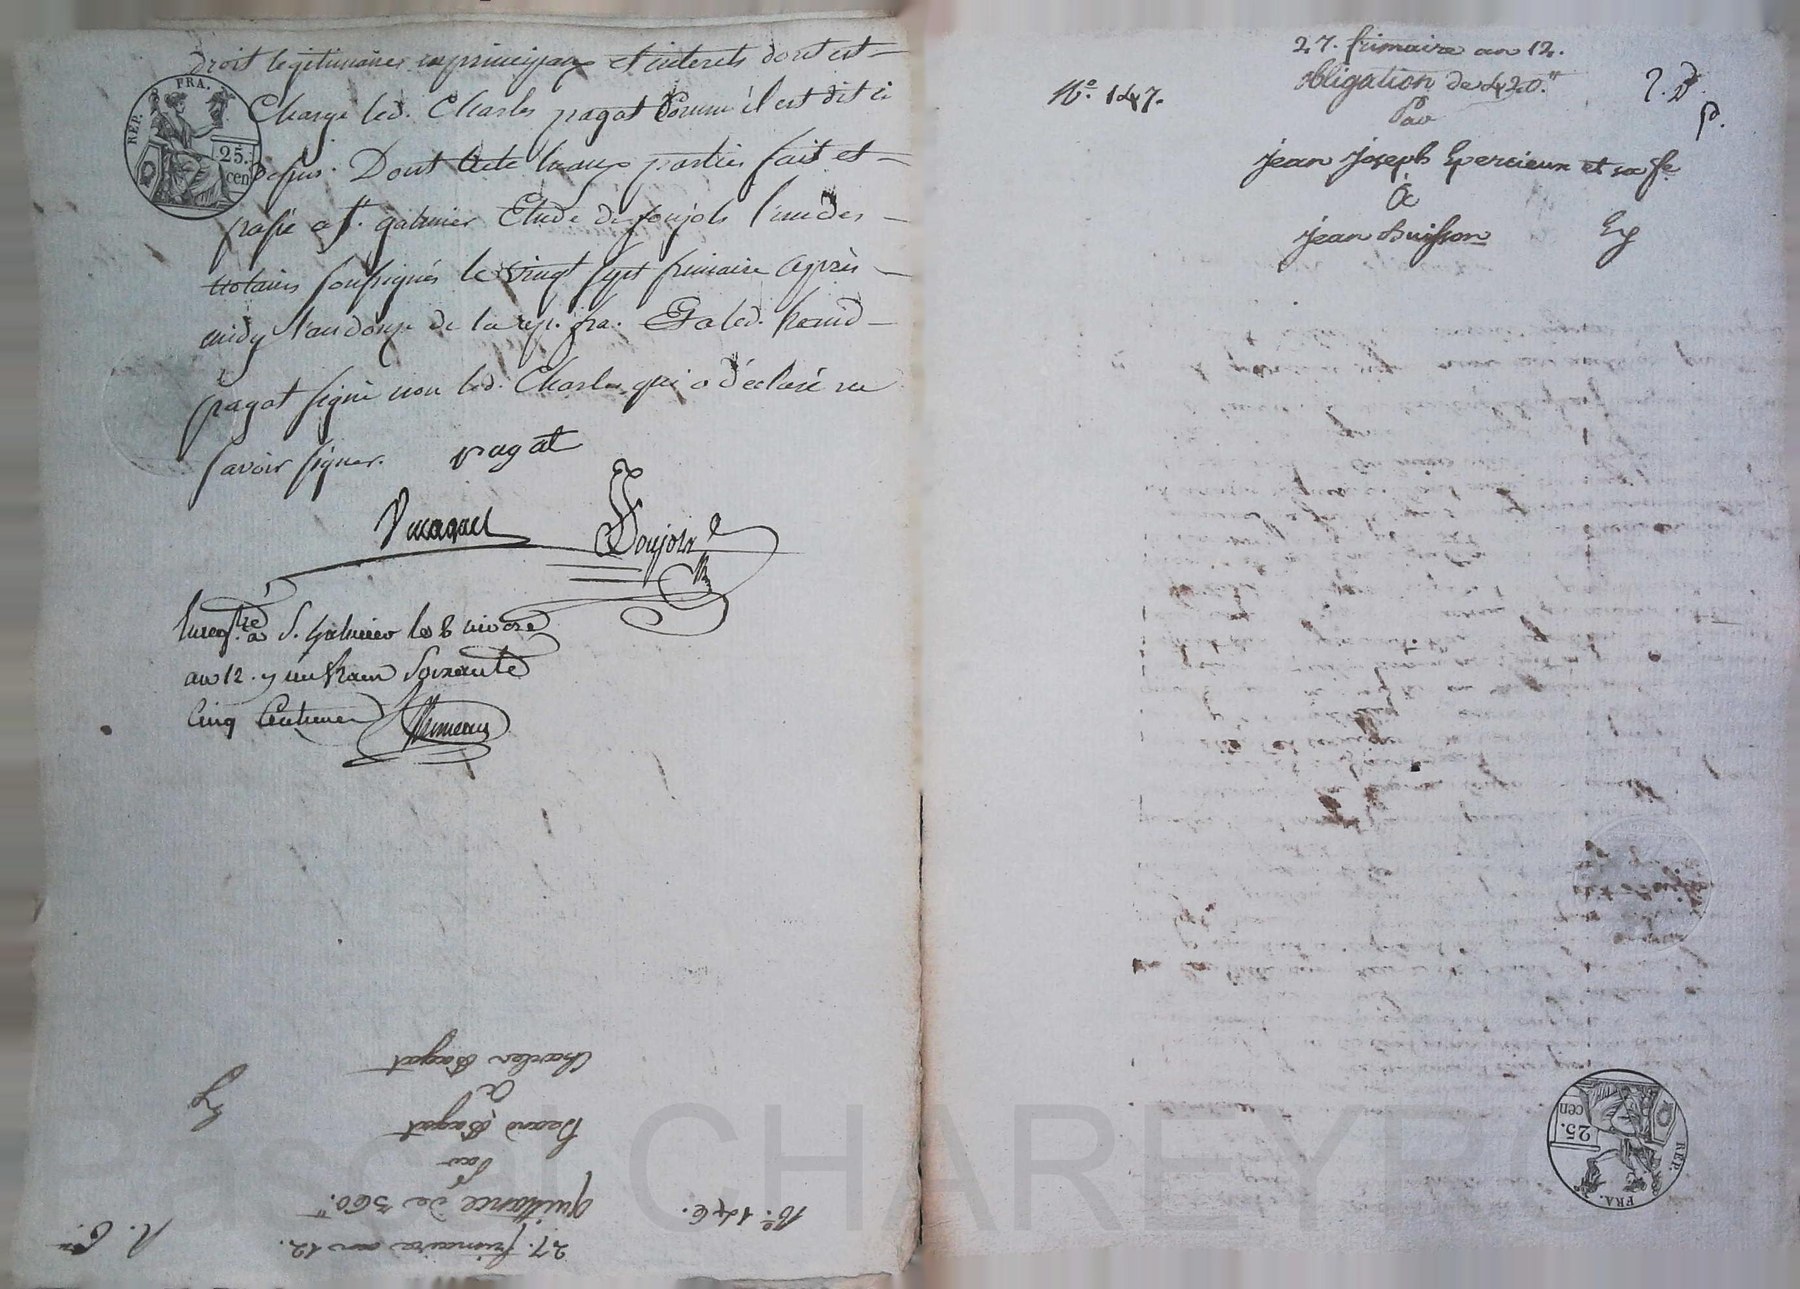 droit legitimaires en principaux et interets dont est
Chargé led. Charles pagat Comme il est dit ci
dessus. Dont Acte les aux parties fait et
passé a St. galmier Etude de poujols l'un des
notaires soussignés le vingt sept frimaire après
midy l'an douze de la rep. fra. Et a led.
pagat signé non led. Charles qui a déclaré ne
savoir signer. pagat
Poujols
REP. FRA.
25.
cen
Enregtré a S. Galmier le 8 nivose
an 12. un franc Soixante
Cinq Centimes
27. frimaire an 12.
N°. 146.
quittance de 360.tt
Par
pagat
A
Charles pagat
27. frimaire an 12.
N°. 147.
obligation de 420.tt
Par
jean joseph Epercieux et sa fe.
A
jean buisson
REP. FRA.
25.
cen
PASCAL CHAREYRON